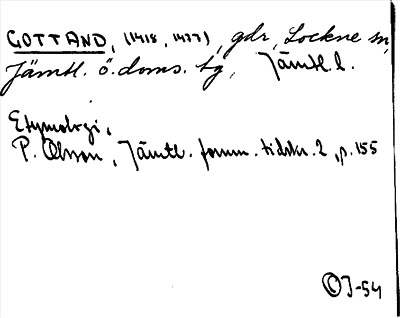 GOTTAND, (1418, 1477), gdr, Lockne sn,
Jämtl. ö. doms. tg, Jämtl. l.
Etymologi,
P. Olsson, Jämtl. fornm. tidskr. 2, p. 155
OJ-54